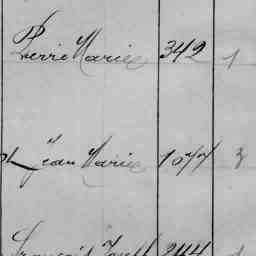 Pierre Marie 342 1
Jean Marie 1077 3
François 244 1